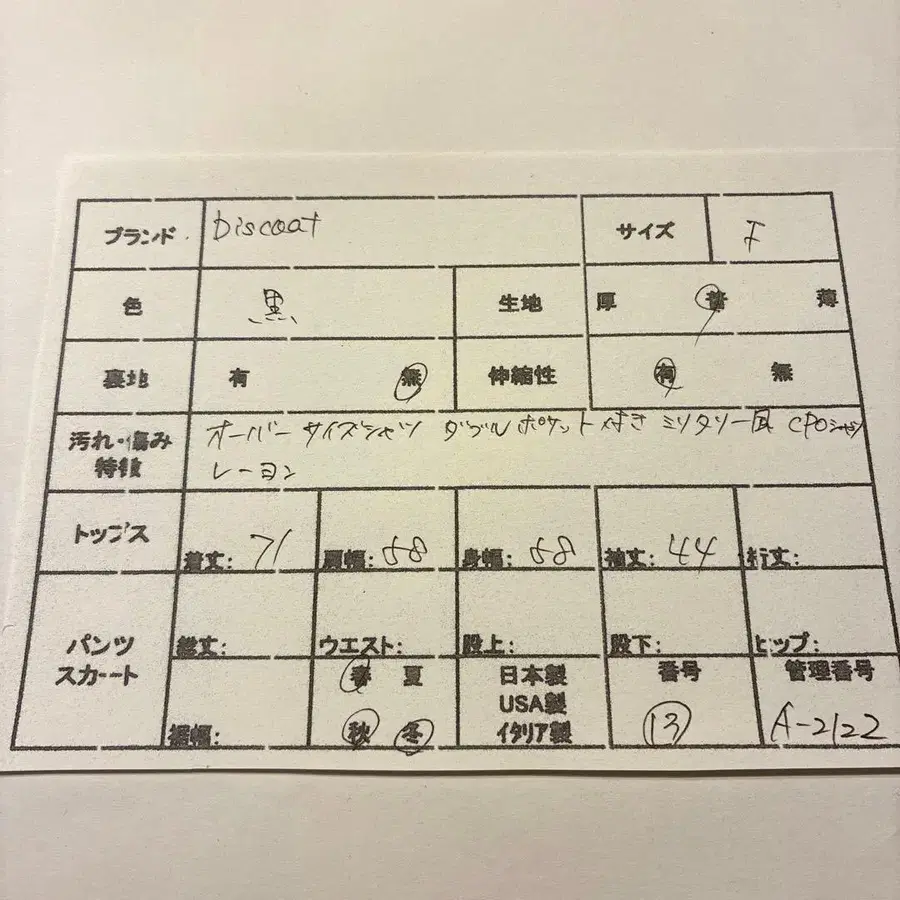 ブランド Discoat サイズ F
色 黒 生地 厚 普 薄
裏地 有 無 伸縮性 有 無
汚れ・傷み オーバーサイズシャツ ダブルポケット付き ミリタリー風 CPOシャツ
特徴 レーヨン
トップス 着丈: 71 肩幅: 58 身幅: 58 袖丈: 44 裄丈:
パンツ 総丈: ウエスト: 股上: 股下: ヒップ:
スカート 春 夏 日本製 番号 管理番号
USA製
裾幅: 秋 冬 イタリア製 13 A-2122